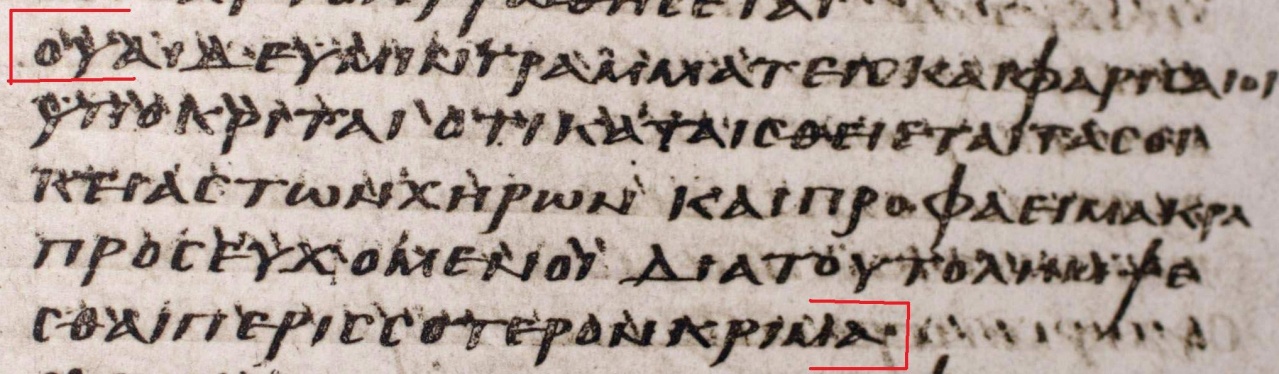 ΟΥΑΙΔΕΥΜΙΝΓΡΑΜΜΑΤΕΙϹΚΑΙΦΑΡΙϹΑΙΟΙ
ΥΠΟΚΡΙΤΑΙ ΟΤΙΚΑΤΑΙϹΘΕΙΕΤΑΙΤΑϹΟΙ
ΚΕΙΑϹΤΩΝΧΗΡΩΝ ΚΑΙΠΡΟΦΑΕΙΜΑΚΡΑ
ΠΡΟϹΕΥΧΟΜΕΝΟΙ ΔΙΑΤΟΥΤΟΛΗΜΨΕ
ϹΘΑΙΠΕΡΙϹϹΟΤΕΡΟΝΚΡΙΜΑ